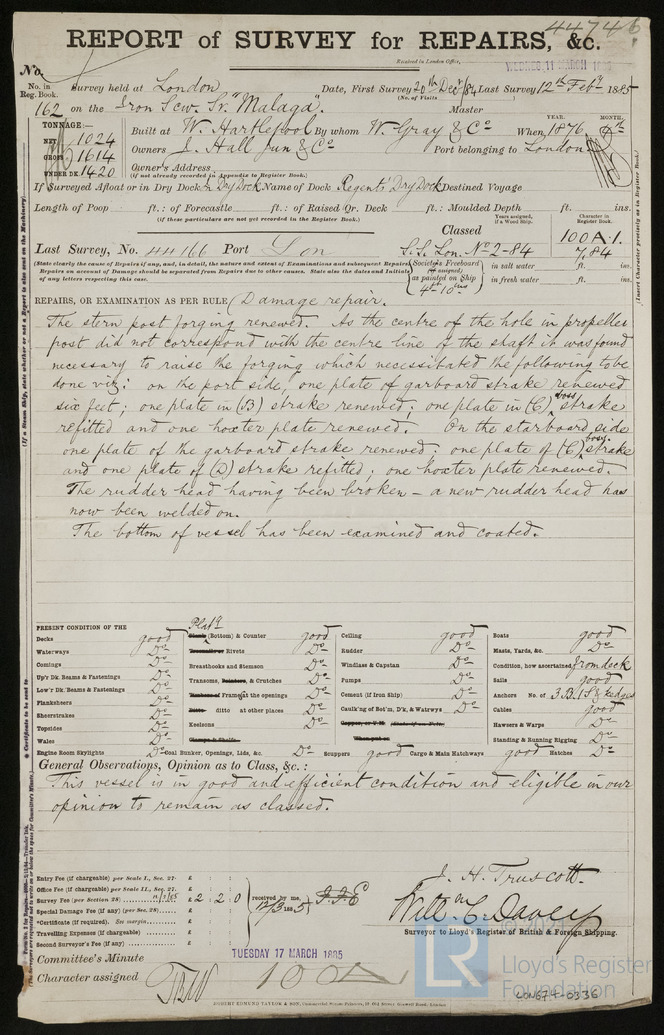 44746
REPORT of SURVEY for REPAIRS, &c.
Received in London Office, WEDNES. 11 MARCH 1885
No.
No. in Reg. Book. Survey held at London Date, First Survey 20th Decr /84 Last Survey 12th Feby 1885
(No. of Visits
162 on the Iron Scw. Sr. "Malaga" Master
TONNAGE:— Built at W. Hartlepool By whom W. Gray & Co When 1876 YEAR. MONTH.
NET 1024
GROSS 1614 Owners J. Hall Jun & Co Port belonging to London
UNDER DK. 1420 Owner's Address
(If not already recorded in Appendix to Register Book.)
If Surveyed Afloat or in Dry Dock In Dry Dock Name of Dock Regents Dry Dock Destined Voyage
Length of Poop ft.: of Forecastle ft.: of Raised Qr. Deck ft.: Moulded Depth ft. ins.
(if these particulars are not yet recorded in the Register Book.)
Years assigned, if a Wood Ship.
Character in Register Book.
Classed 100A.1.
Last Survey, No. 44166 Port Lon S.S. Lon. No 2-84 7,84
(State clearly the cause of Repairs if any, and, in detail, the nature and extent of Examinations and subsequent Repairs.
Repairs on account of Damage should be separated from Repairs due to other causes. State also the dates and initials of any letters respecting this case.
Society's Freeboard (if assigned) as painted on Ship
in salt water ft. ins.
in fresh water ft. ins.
REPAIRS, OR EXAMINATION AS PER RULE (Damage repair.
The stern post forging renewed. As the centre of the hole in propeller
post did not correspond with the centre line of the shaft it was found
necessary to raise the forging which necessitated the following to be
done viz: on the port side, one plate of garboard strake renewed
six feet; one plate in (B) strake renewed; one plate in (C) boss strake
refitted and one hoxter plate renewed. On the starboard side
one plate of the garboard strake renewed: one plate of (C) boss strake
and one plate of (D) strake refitted; one hoxter plate renewed.
The rudder head having been broken – a new rudder head has
now been welded on.
The bottom of vessel has been examined and coated.
PRESENT CONDITION OF THE
Decks good
Waterways Do
Comings Do
Up'r Dk. Beams & Fastenings Do
Low'r Dk. Beams & Fastenings Do
Planksheers Do
Sheerstrakes Do
Topsides Do
Wales Do
Engine Room Skylights Do
Platg (Bottom) & Counter good
Rivets Do
Breasthooks and Stemson Do
Transoms, Pointers, & Crutches Do
Timbers of Frame at the openings Do
Ditto ditto at other places Do
Keelsons Do
Clamps & Shelfs
Coal Bunker, Openings, Lids, &c. Do
Ceiling good
Rudder Do
Windlass & Capstan Do
Pumps Do
Cement (if Iron Ship) Do
Caulk'ng of Bot'm, D'k, & Watrwys Do
Scuppers good Cargo & Main Hatchways good Hatches Do
Boats good
Masts, Yards, &c. Do
Condition, how ascertained from deck
Sails good
Anchors No. of 3 B. 1 S. & kedges
Cables good
Hawsers & Warps Do
Standing & Running Rigging Do
General Observations, Opinion as to Class, &c.:
This vessel is in good and efficient condition and eligible in our
opinion to remain as classed.
Entry Fee (if chargeable) per Scale I., Sec. 27. £ : :
Office Fee (if chargeable) per Scale II., Sec. 27. £ : :
Survey Fee (per Section 28) £ 2 : 2 : 0
Special Damage Fee (if any) (per Sec. 28) £ : :
*Certificate (if required). See margin. £ : :
Travelling Expenses (if chargeable) £ : :
Second Surveyor's Fee (if any) £ : :
received by me, 12/3 1885
J. H. Truscott.
Willm C. Davey
Surveyor to Lloyd's Register of British & Foreign Shipping.
Committee's Minute TUESDAY 17 MARCH 1885
Character assigned 100A
ROBERT EDMUND TAYLOR & SON
Lloyd's Register
Foundation
LR
LON674-0336